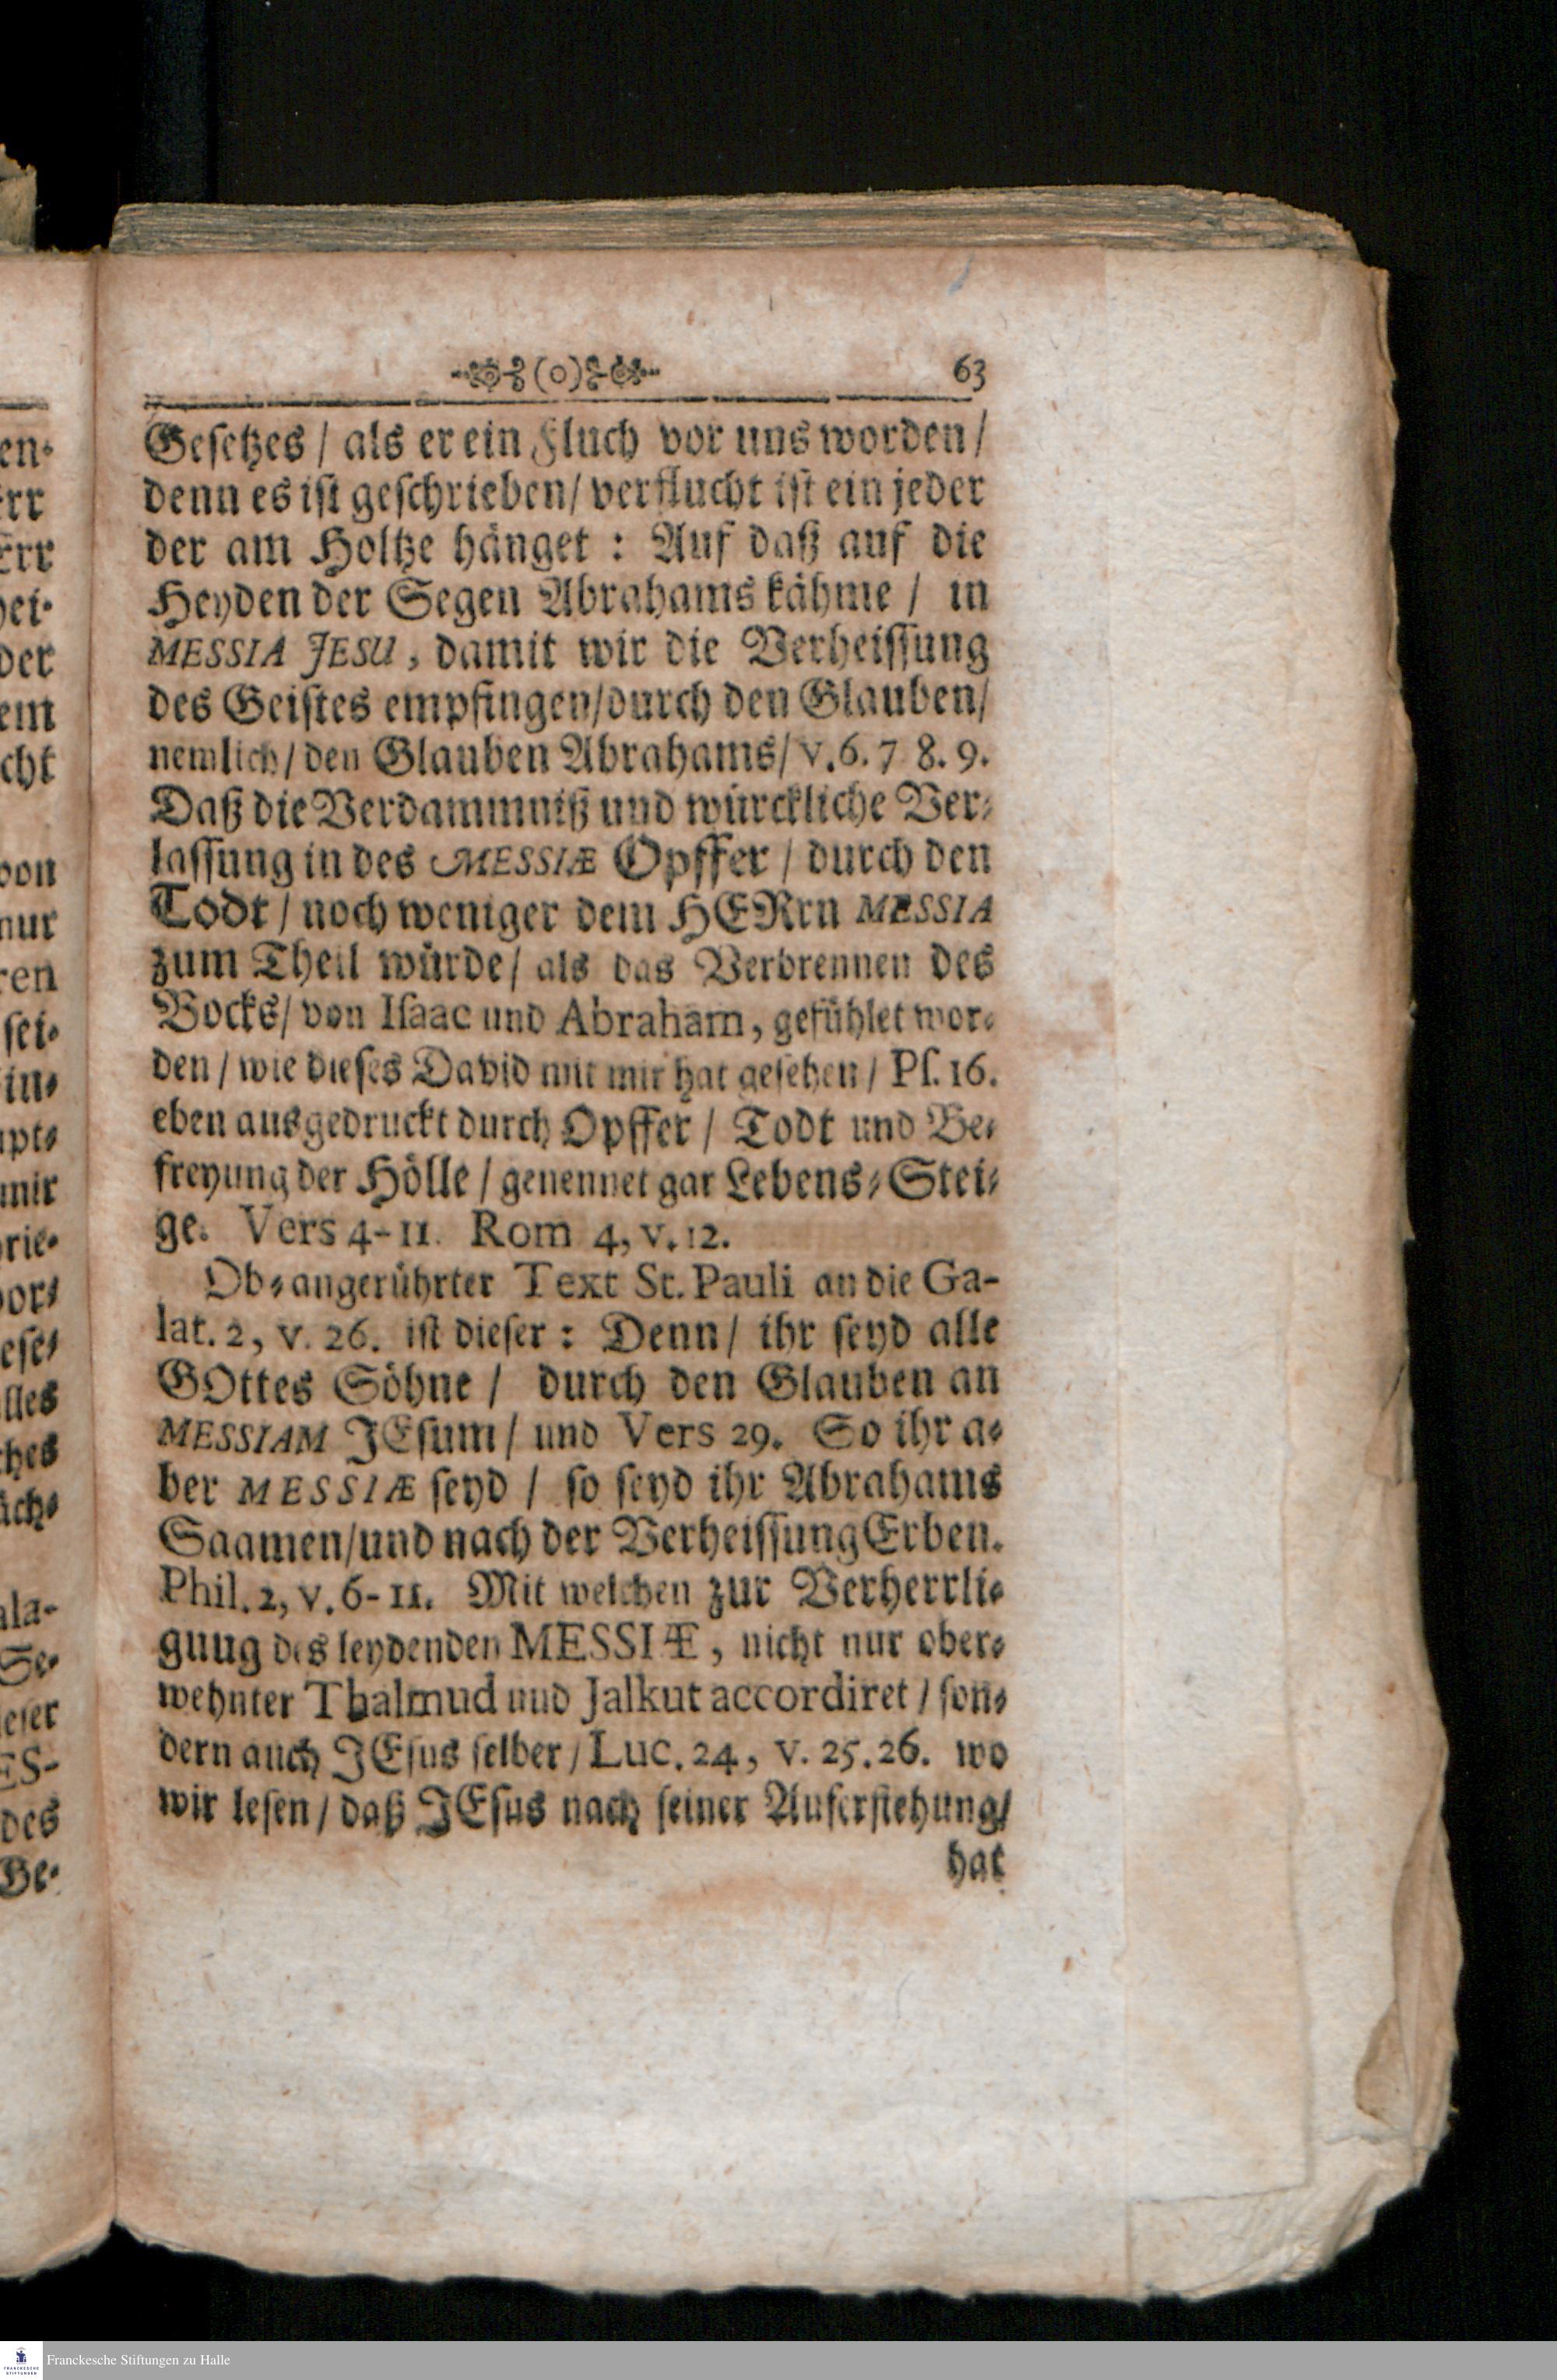 (o) 63
Gesetzes / als er ein Fluch vor uns worden /
denn es ist geschrieben / verflucht ist ein jeder
der am Holtze hänget : Auf daß auf die
Heyden der Segen Abrahams kähme / in
MESSIA JESU, damit wir die Verheissung
des Geistes empfingen / durch den Glauben /
nemlich / den Glauben Abrahams / v. 6. 7 8. 9.
Daß die Verdammniß und würckliche Ver-
lassung in des MESSIÆ Opffer / durch den
Todt / noch weniger dem HERrn MESSIA
zum Theil würde / als das Verbrennen des
Bocks / von Isaac und Abraham, gefühlet wor-
den / wie dieses David mit mir hat gesehen / Ps. 16.
eben ausgedruckt durch Opffer / Todt und Be-
freyung der Hölle / genennet gar Lebens-Stei-
ge. Vers 4-11. Rom 4, v. 12.
Ob-angerührter Text St. Pauli an die Ga-
lat. 2, v. 26. ist dieser : Denn / ihr seyd alle
GOttes Söhne / durch den Glauben an
MESSIAM JEsum / und Vers 29. So ihr a-
ber MESSIÆ seyd / so seyd ihr Abrahams
Saamen / und nach der Verheissung Erben.
Phil. 2, v. 6-11. Mit welchen zur Verherrli-
guug des leydenden MESSIÆ, nicht nur ober-
wehnter Thalmud und Jalkut accordiret / son-
dern auch JEsus selber / Luc. 24, v. 25. 26. wo
wir lesen / daß JEsus nach seiner Auferstehung /
hat
Franckesche Stiftungen zu Halle